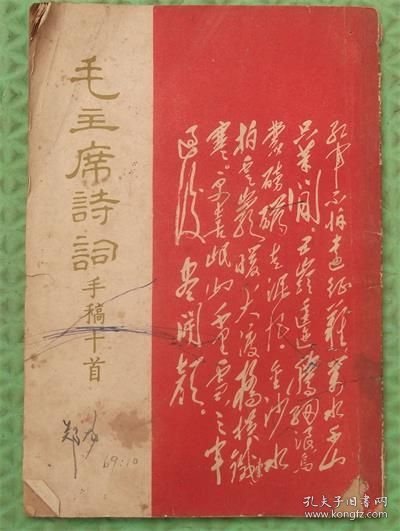 毛主席詩詞
手稿十首
郑
69:10
红軍不怕遠征難萬水千山
只等闲。五嶺逶迤腾细浪烏
蒙磅礴走泥丸金沙水
拍雲崖暖大渡橋横鐵索
寒。更喜岷山千里雪。三军
過後盡開顏。
孔夫子旧书网
www.kongfz.com